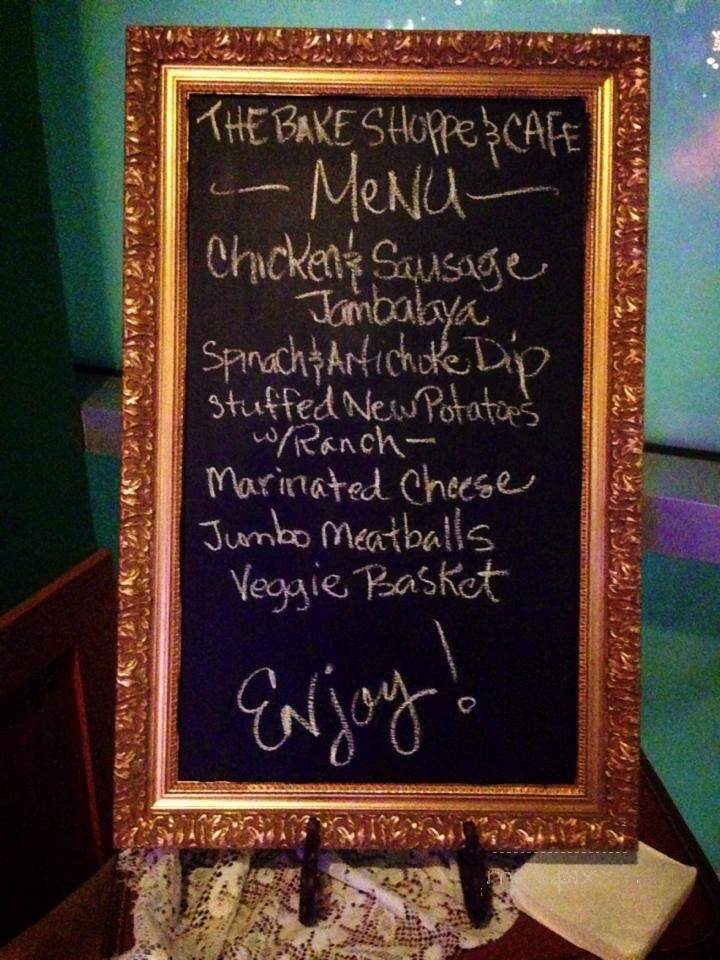 THE BAKE SHOPPE & CAFE
— MENU —
Chicken & Sausage
Jambalaya
Spinach & Artichoke Dip
Stuffed New Potatoes
w/Ranch —
Marinated Cheese
Jumbo Meatballs
Veggie Basket
Enjoy!